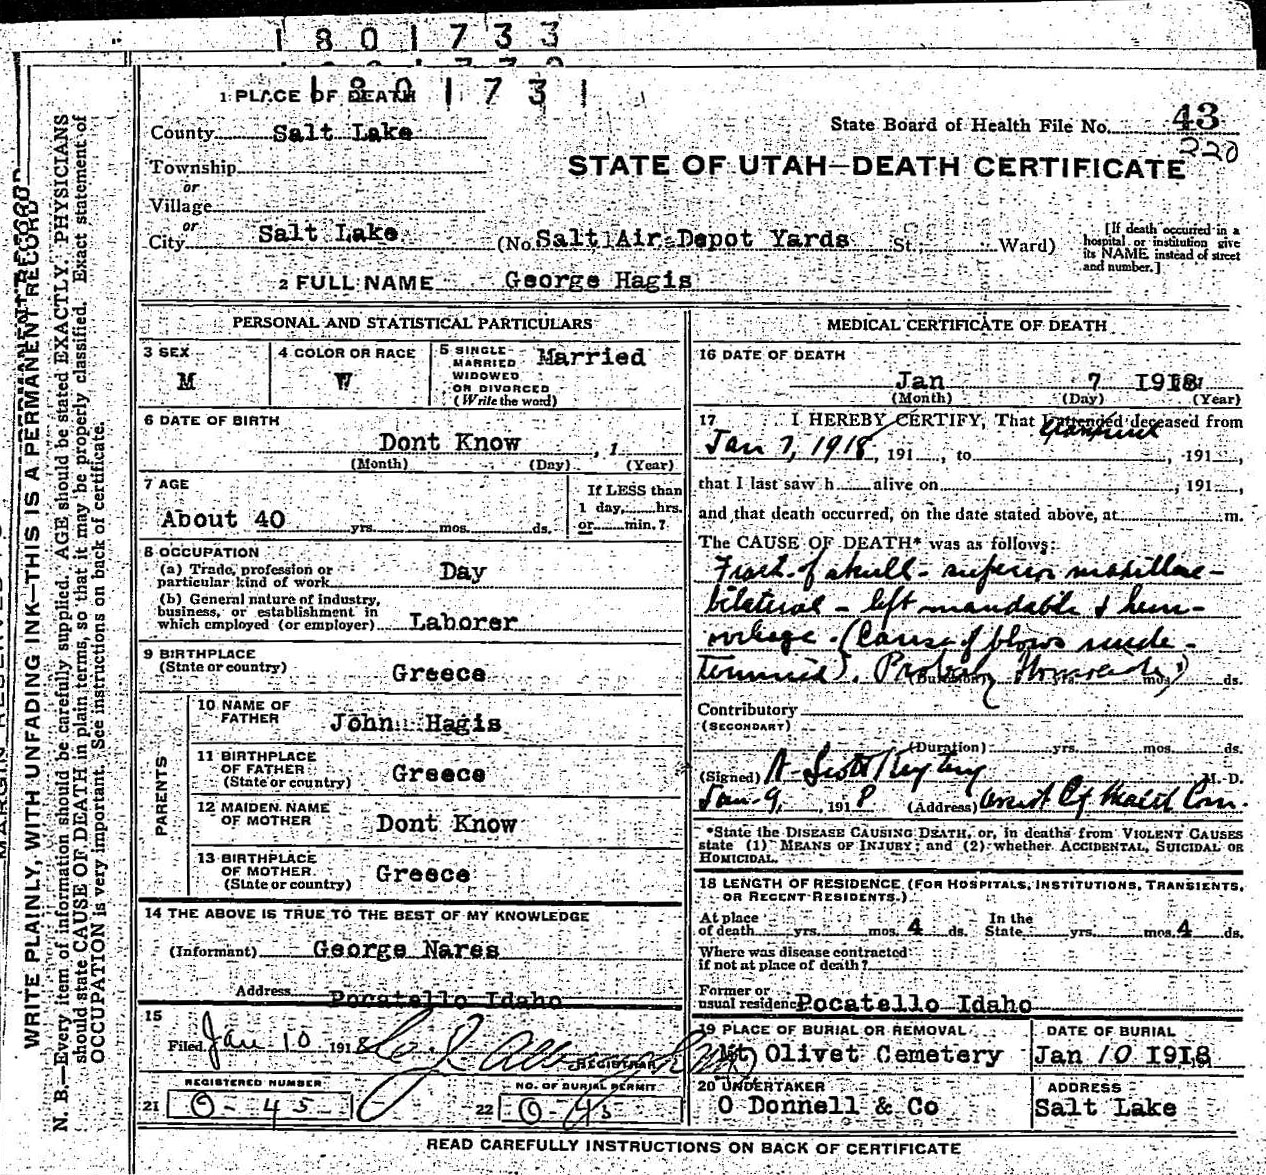 1801733
1801731
1 PLACE OF DEATH
County Salt Lake
State Board of Health File No. 43
220
Township
or
Village
or
City Salt Lake
STATE OF UTAH—DEATH CERTIFICATE
(No. Salt Air Depot Yards St. Ward)
[If death occurred in a hospital or institution give its NAME instead of street and number.]
2 FULL NAME George Hagis
PERSONAL AND STATISTICAL PARTICULARS
3 SEX
M
4 COLOR OR RACE
W
5 SINGLE MARRIED WIDOWED OR DIVORCED (Write the word) Married
6 DATE OF BIRTH
Dont Know , 1
(Month) (Day) (Year)
7 AGE
About 40 yrs. mos. ds.
If LESS than 1 day, hrs. or min.?
8 OCCUPATION
(a) Trade, profession or particular kind of work Day
(b) General nature of industry, business, or establishment in which employed (or employer) Laborer
9 BIRTHPLACE
(State or country) Greece
PARENTS
10 NAME OF FATHER John Hagis
11 BIRTHPLACE OF FATHER (State or country) Greece
12 MAIDEN NAME OF MOTHER Dont Know
13 BIRTHPLACE OF MOTHER (State or country) Greece
14 THE ABOVE IS TRUE TO THE BEST OF MY KNOWLEDGE
(Informant) George Nares
Address Pocatello Idaho
15
Filed Jan 10 1918
REGISTRAR
REGISTERED NUMBER
21 0-45
NO. OF BURIAL PERMIT
22 0-45
MEDICAL CERTIFICATE OF DEATH
16 DATE OF DEATH
Jan 7 1918
(Month) (Day) (Year)
17 I HEREBY CERTIFY, That I attended deceased from
Examined
Jan 7, 1918, 191 , to , 191 ,
that I last saw h alive on , 191 ,
and that death occurred, on the date stated above, at m.
The CAUSE OF DEATH* was as follows:
Fract. of skull - superior maxillae -
bilateral - left mandable & hem-
orrhage. (Cause of blows unde-
termined). Probably Homicide
(Duration) yrs. mos. ds.
Contributory
(SECONDARY)
(Duration) yrs. mos. ds.
(Signed) M. D.
Jan. 9, 1918 (Address) Asst Cy Health Com.
*State the DISEASE CAUSING DEATH, or, in deaths from VIOLENT CAUSES
state (1) MEANS OF INJURY; and (2) whether ACCIDENTAL, SUICIDAL OR
HOMICIDAL.
18 LENGTH OF RESIDENCE (FOR HOSPITALS, INSTITUTIONS, TRANSIENTS,
OR RECENT RESIDENTS.)
At place of death yrs. mos. 4 ds. In the State yrs. mos. 4 ds.
Where was disease contracted
if not at place of death?
Former or
usual residence Pocatello Idaho
19 PLACE OF BURIAL OR REMOVAL
Mt Olivet Cemetery
DATE OF BURIAL
Jan 10 1918
20 UNDERTAKER
O Donnell & Co
ADDRESS
Salt Lake
READ CAREFULLY INSTRUCTIONS ON BACK OF CERTIFICATE
WRITE PLAINLY, WITH UNFADING INK—THIS IS A PERMANENT RECORD
N. B.—Every item of information should be carefully supplied. AGE should be stated EXACTLY. PHYSICIANS
should state CAUSE OF DEATH in plain terms, so that it may be properly classified. Exact statement of
OCCUPATION is very important. See instructions on back of certificate.